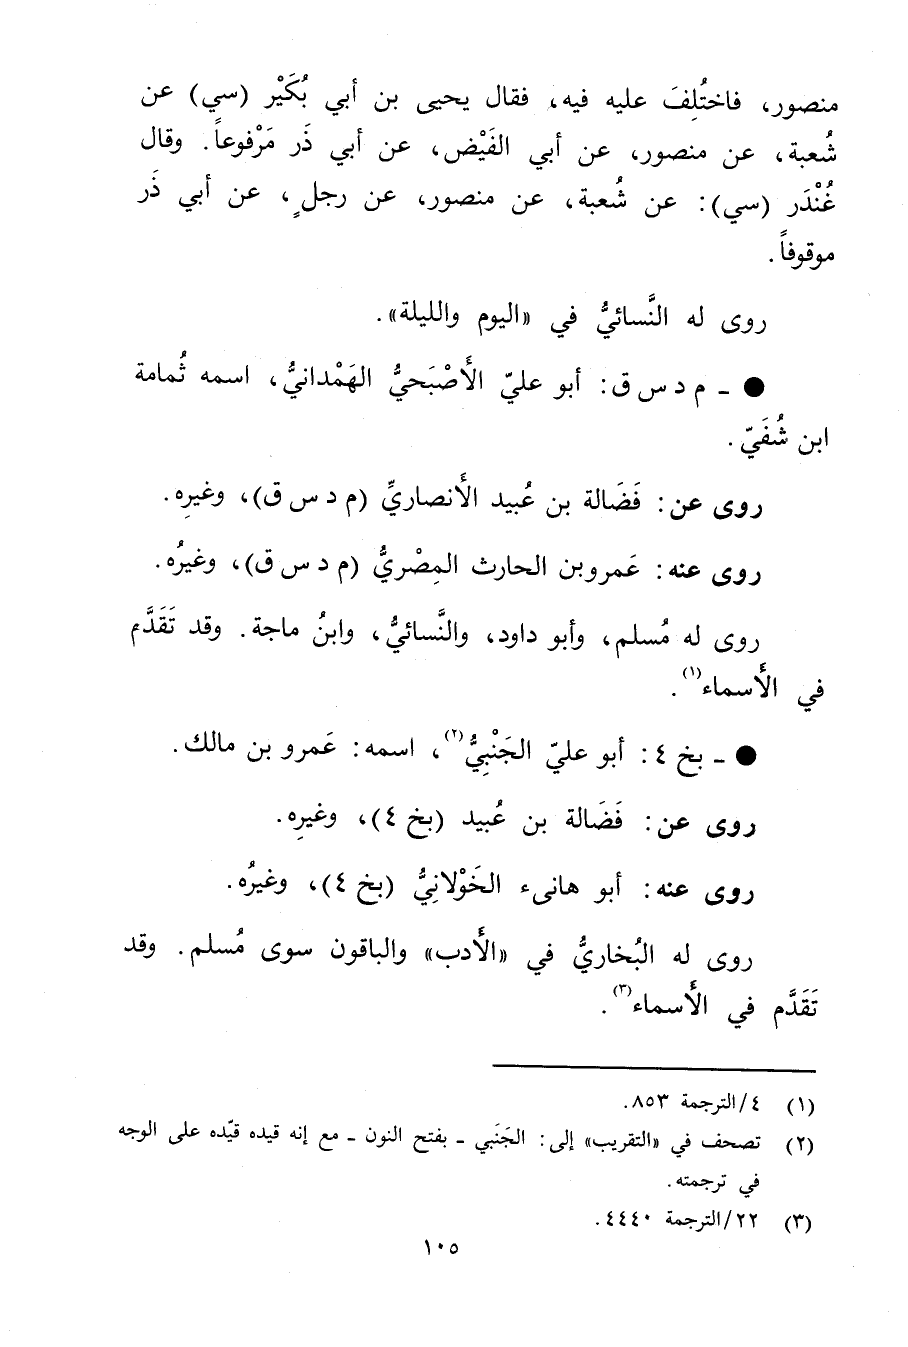 منصور، فاختُلِفَ عليه فيه، فقال يحيى بن أبي بُكَيْر (سي) عن
شُعبة، عن منصور، عن أبي الفَيْض، عن أبي ذَر مَرْفوعاً. وقال
غُنْدَر (سي): عن شُعبة، عن منصور، عن رجلٍ، عن أبي ذَر
موقوفاً.
روى له النَّسائيُّ في «اليوم والليلة».
● ـ م د س ق: أبو عليّ الأَصْبَحيُّ الهَمْدانيُّ، اسمه ثُمامة
ابن شُفَيّ.
روى عن: فَضَالة بن عُبيد الأَنصاريِّ (م د س ق)، وغيرِه.
روى عنه: عَمرو بن الحارث المِصْريُّ (م د س ق)، وغيرُه.
روى له مُسلم، وأبو داود، والنَّسائيُّ، وابنُ ماجة. وقد تَقَدَّم
في الأَسماء(١).
● ـ بخ ٤: أبو عليّ الجَنْبِيُّ(٢)، اسمه: عَمرو بن مالك.
روى عن: فَضَالة بن عُبيد (بخ ٤)، وغيرِه.
روى عنه: أبو هانىء الخَوْلانِيُّ (بخ ٤)، وغيرُه.
روى له البُخاريُّ في «الأَدب» والباقون سوى مُسلم. وقد
تَقَدَّم في الأَسماء(٣).
(١) ٤/الترجمة ٨٥٣.
(٢) تصحف في «التقريب» إلى: الجَنَبي ـ بفتح النون ـ مع إنه قيده قيّده على الوجه
في ترجمته.
(٣) ٢٢/الترجمة ٤٤٤٠.
١٠٥